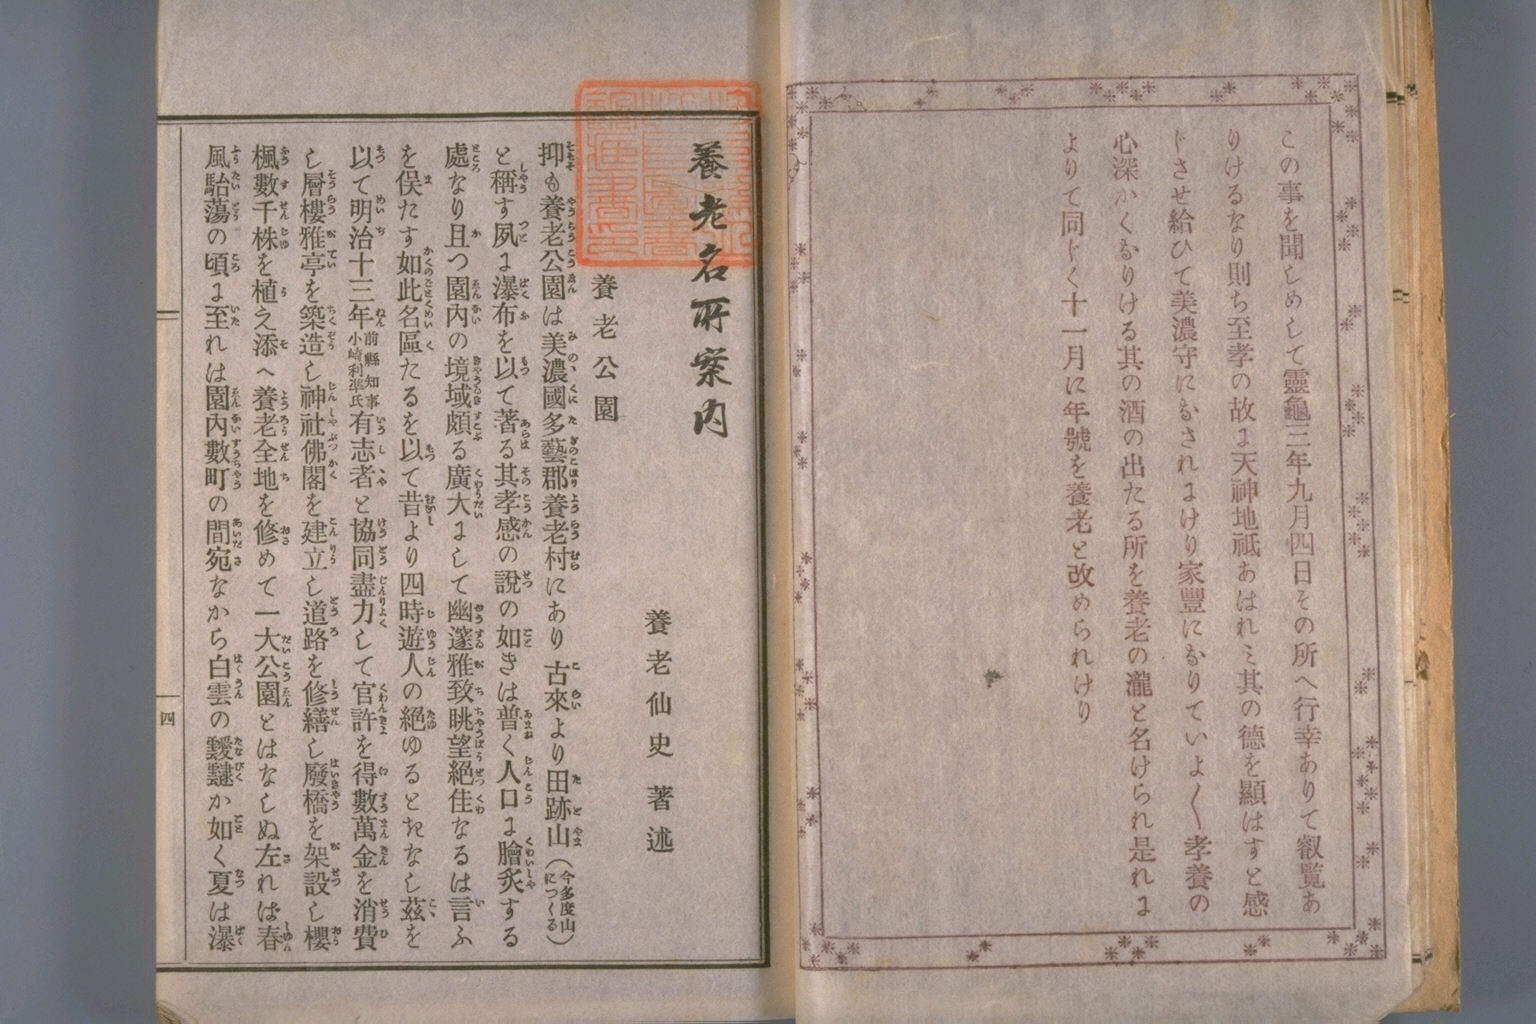 この事を聞しめして靈龜三年九月四日その所へ行幸ありて叡覧あ
りけるなり則ち至孝の故に天神地祗あはれミ其の德を顯はすと感
じさせ給ひて美濃守になされにけり家豐になりていよ〱孝養の
心深かくなりける其の酒の出たる所を養老の瀧と名けられ是れに
よりて同じく十一月に年號を養老と改められけり
養老名所案内
養老仙史著述
養老公園
抑も養老公園は美濃國多藝郡養老村にあり古來より田跡山(今多度山につくる)
と稱す夙に瀑布を以て著る其孝感の說の如きは普く人口に膾炙する
處なり且つ園內の境域頗る廣大にして幽邃雅致眺望絕佳なるは言ふ
を俟たす如此名區たるを以て昔より四時遊人の絕ゆるときなし茲を
以て明治十三年前縣知事小崎利準氏有志者と協同盡力して官許を得數萬金を消費
し層樓雅亭を築造し神社佛閣を建立し道路を修繕し廢橋を架設し櫻
楓數千株を植え添へ養老全地を修めて一大公園とはなしぬ左れば春
風駘蕩の頃に至れは園內數町の間宛なから白雲の靉靆か如く夏は瀑
四